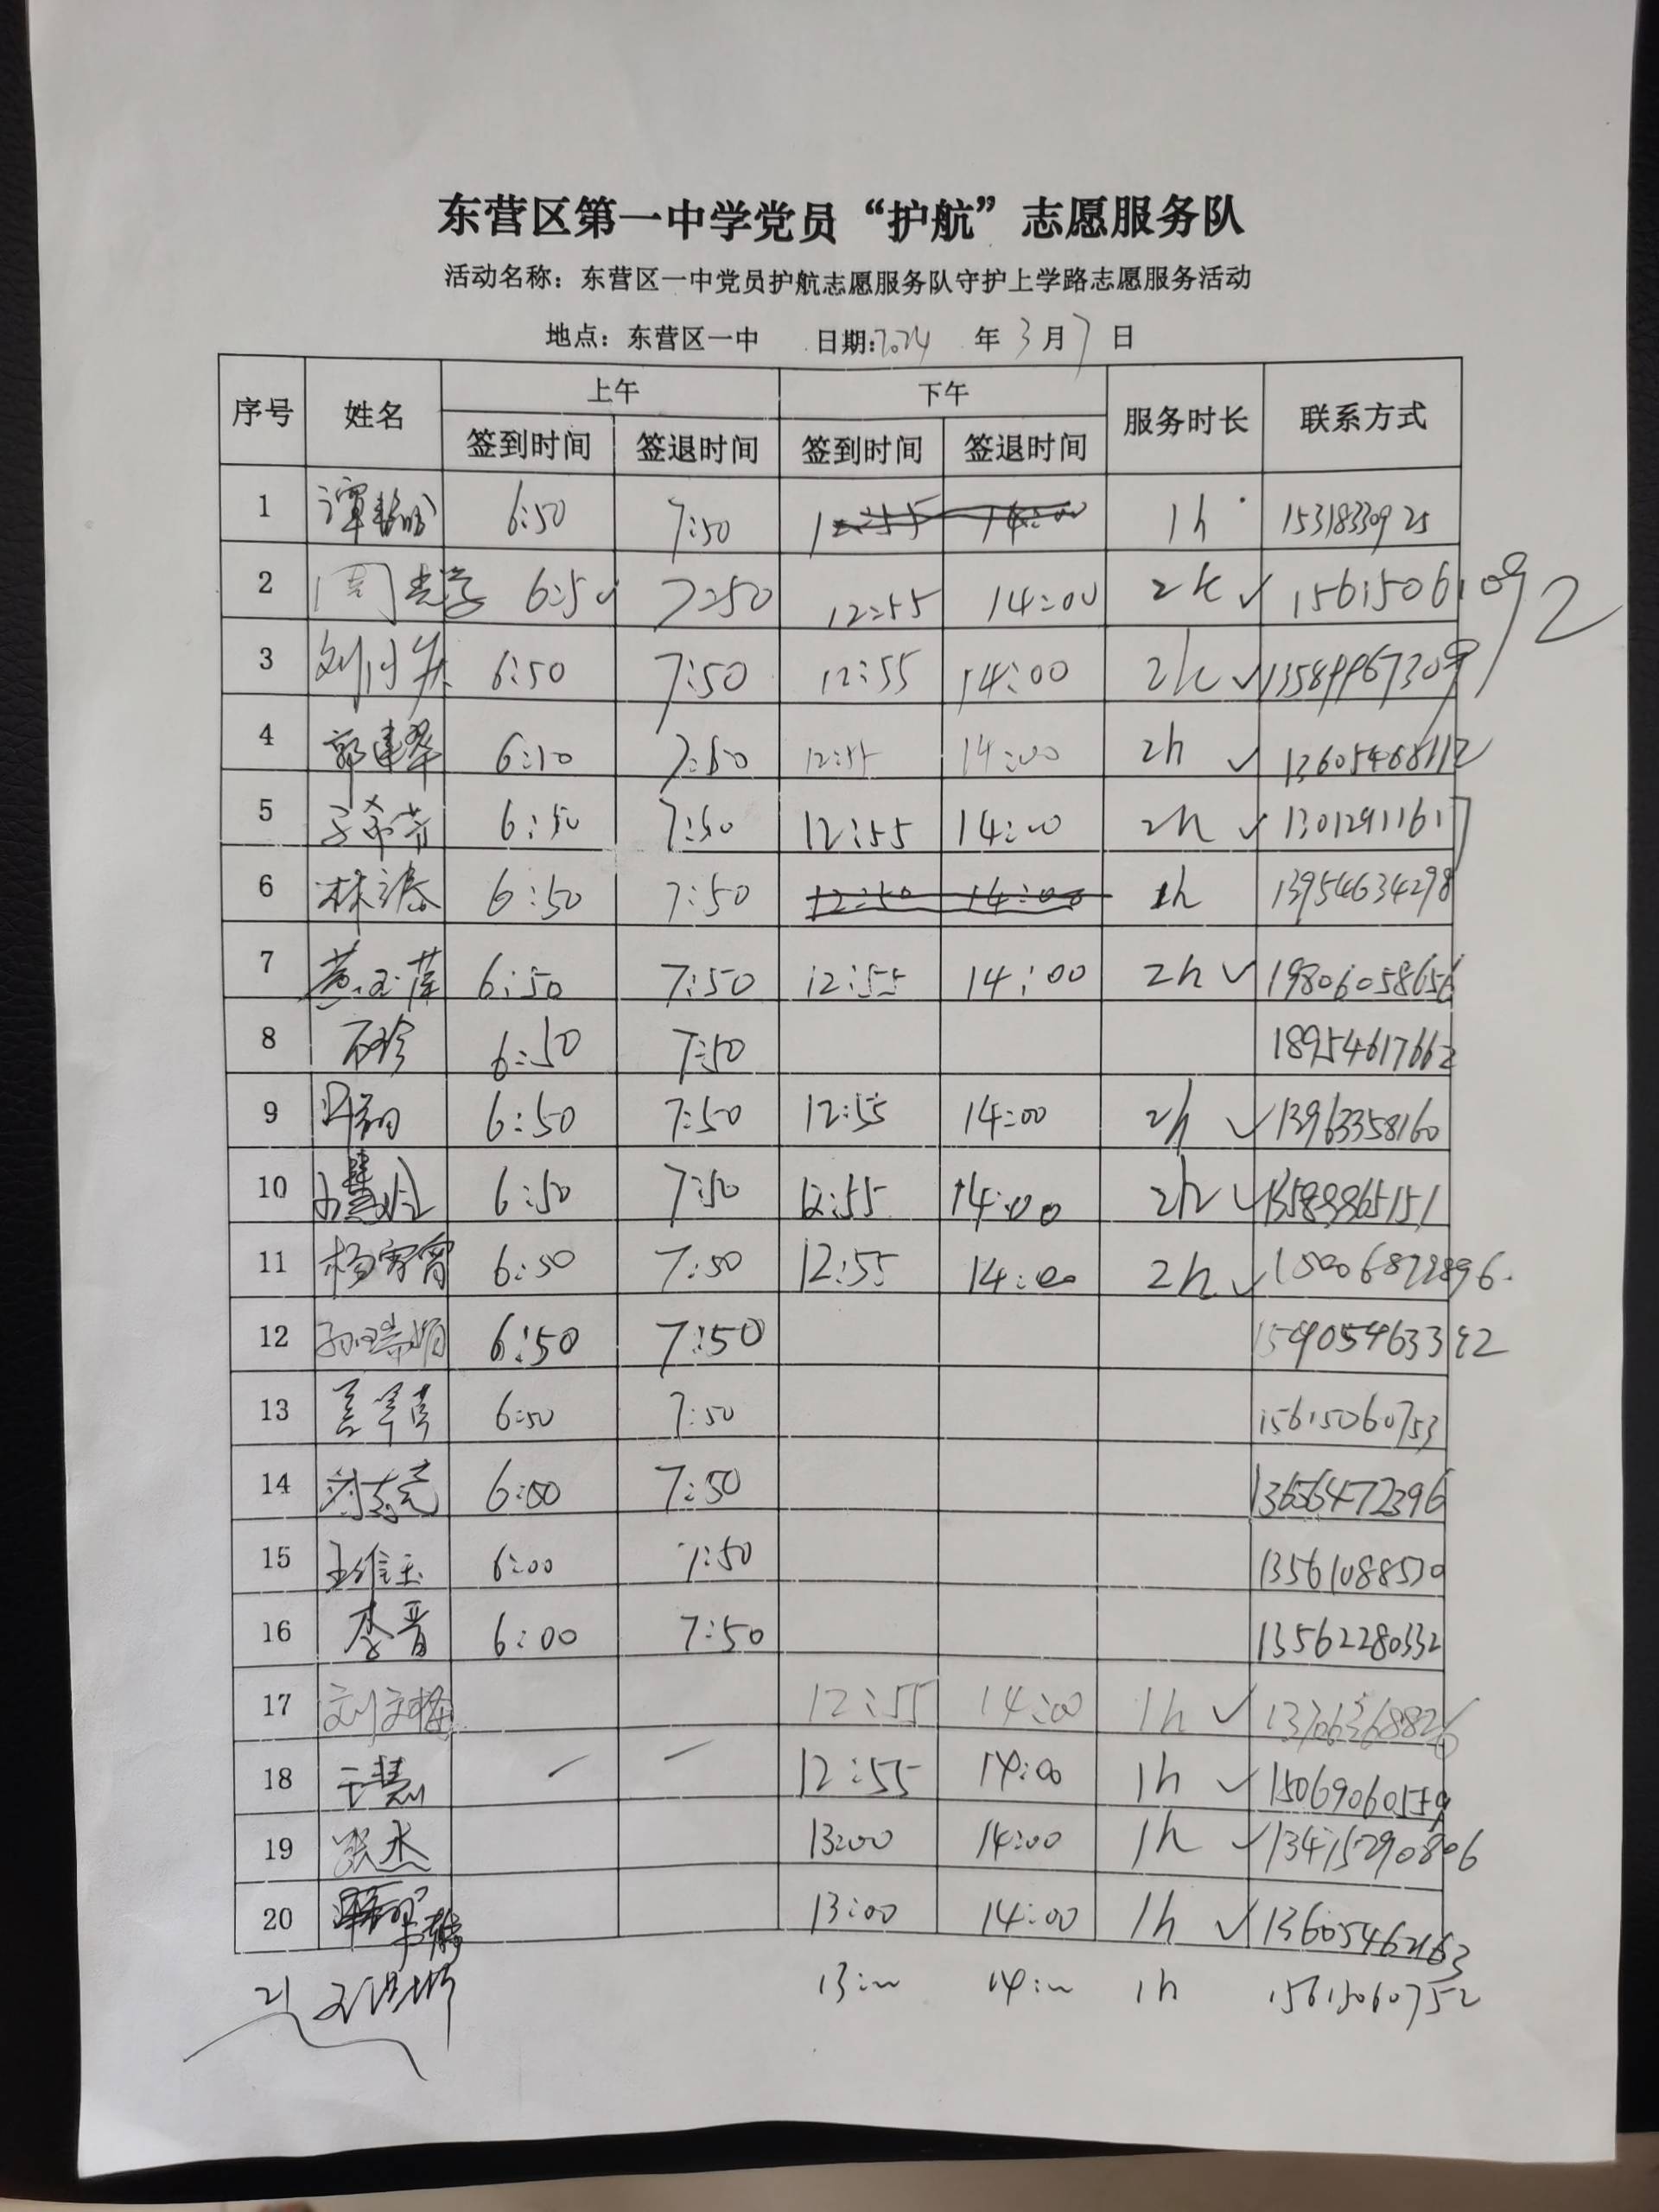 东营区第一中学党员“护航”志愿服务队
活动名称：东营区一中党员护航志愿服务队守护上学路志愿服务活动
地点：东营区一中 日期:2024 年 3 月 7 日
序号 姓名 上午 下午 服务时长 联系方式
签到时间 签退时间 签到时间 签退时间
1 6:50 7:50 12:55 14:00 1h 15318330925
2 周 6:50 7:50 12:55 14:00 2h ✓ 15615061092
3 刘 6:50 7:50 12:55 14:00 2h ✓
4 郭建翠 6:50 7:50 12:55 14:00 2h ✓ 13605468112
5 6:50 7:50 12:55 14:00 2h ✓ 13012911617
6 林 6:50 7:50 12:50 14:00 1h 13954634298
7 黄玉萍 6:50 7:50 12:55 14:00 2h ✓ 19806058656
8 石珍 6:50 7:50 18954617662
9 6:50 7:50 12:55 14:00 2h ✓ 13963358160
10 6:50 7:50 12:55 14:00 2h ✓
11 杨宵宵 6:50 7:50 12:55 14:00 2h ✓ 15006872896
12 孙瑞娟 6:50 7:50
13 6:50 7:50 15615060753
14 6:00 7:50 13656472396
15 王维玉 6:00 7:50 13561088530
16 李晋 6:00 7:50 13562280332
17 刘文梅 12:55 14:00 1h ✓
18 于慧 — — 12:55 14:00 1h ✓ 15069060559
19 张杰 13:00 14:00 1h ✓ 13415290806
20 13:00 14:00 1h ✓ 13605462163
21 13:00 14:00 1h 15615060752